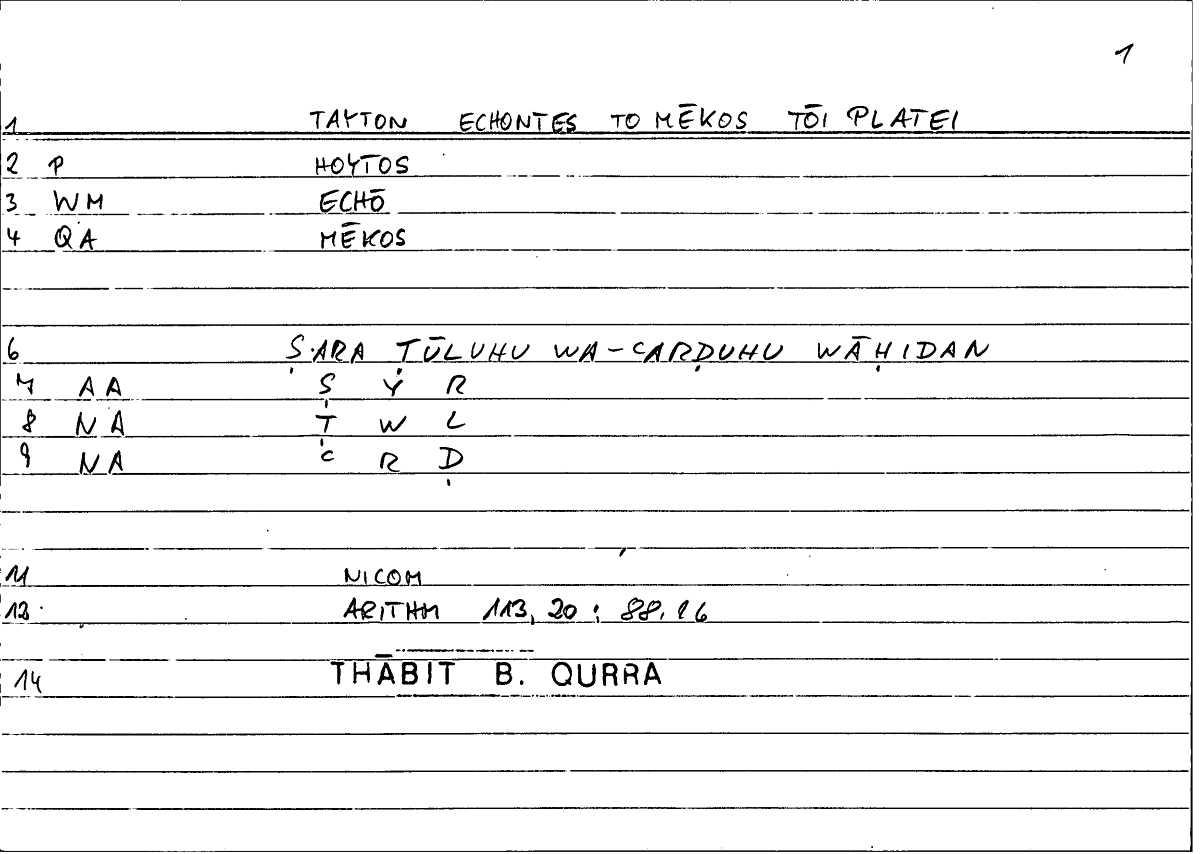 1
1 TAYTON ECHONTES TO MĒKOS TŌI PLATEI
2 P HOYTOS
3 WM ECHŌ
4 QA MĒKOS
6 ṢARA ṬŪLUHU WA-CARḌUHU WĀḤIDAN
7 AA Ṣ Y R
8 NA Ṭ W L
9 NA C R Ḍ
11 NICOM
13 ARITHM 113, 20 : 88.16
14 THĀBIT B. QURRA